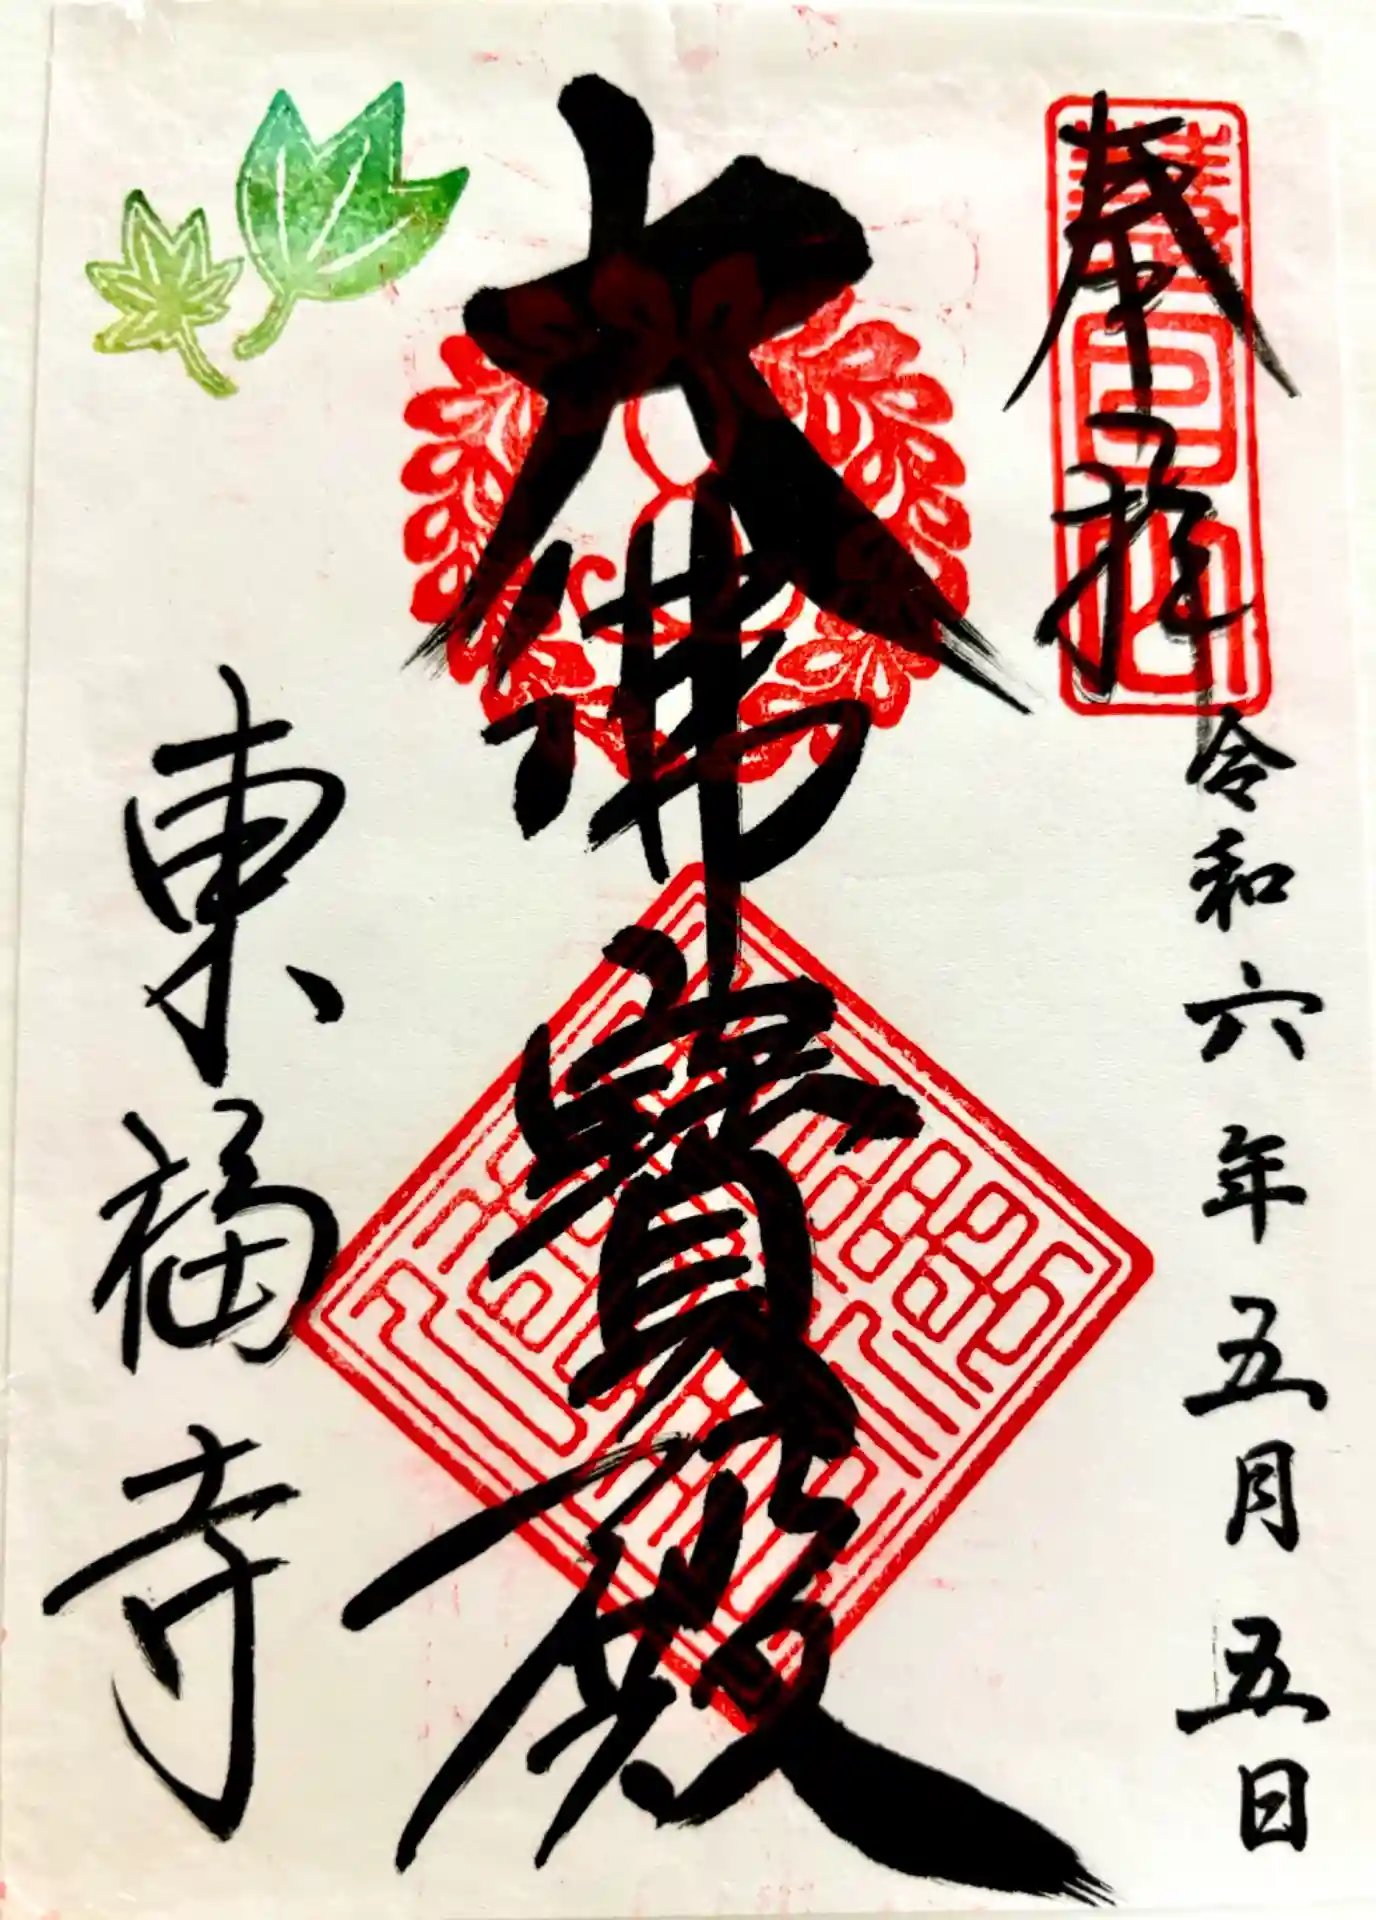 奉拝
令和六年五月五日
大佛寶殿
東福寺